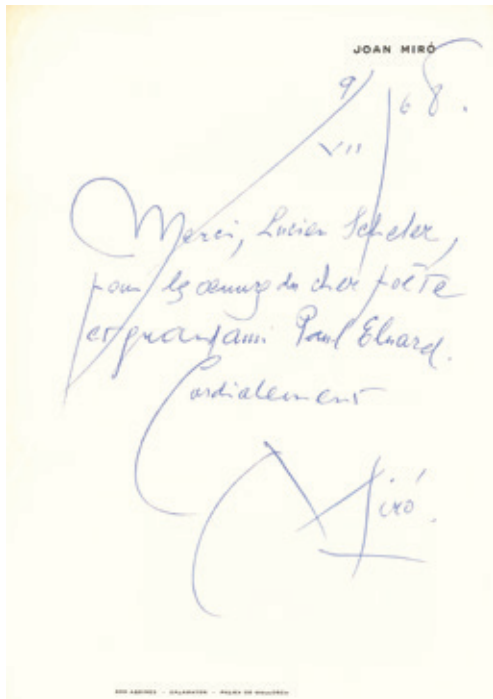 JOAN MIRÓ
9/
VII
68.
Merci, Lucien Scheler,
pour les œuvres du cher poète
et grand ami Paul Eluard.
Cordialement
Miró.
SON ABRINES - CALAMAYOR - PALMA DE MALLORCA